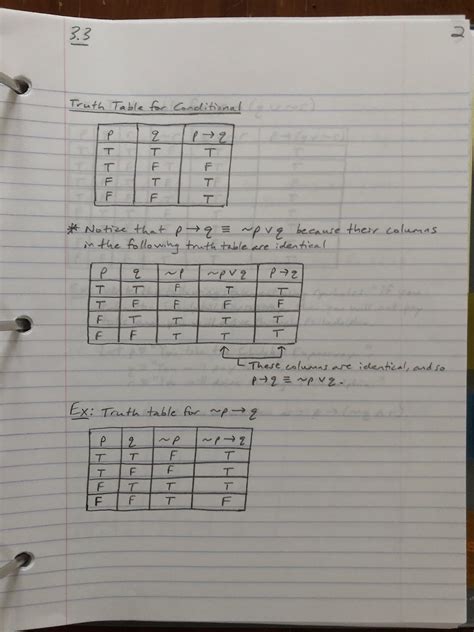 3.3
2
Truth Table for Conditional
p q p → q
T T T
T F F
F T T
F F T
* Notice that p → q ≡ ~p ∨ q because their columns
in the following truth table are identical
p q ~p ~p ∨ q p → q
T T F T T
T F F F F
F T T T T
F F T T T
These columns are identical, and so
p → q ≡ ~p ∨ q.
Ex: Truth table for ~p → q
p q ~p ~p → q
T T F T
T F F T
F T T T
F F T F